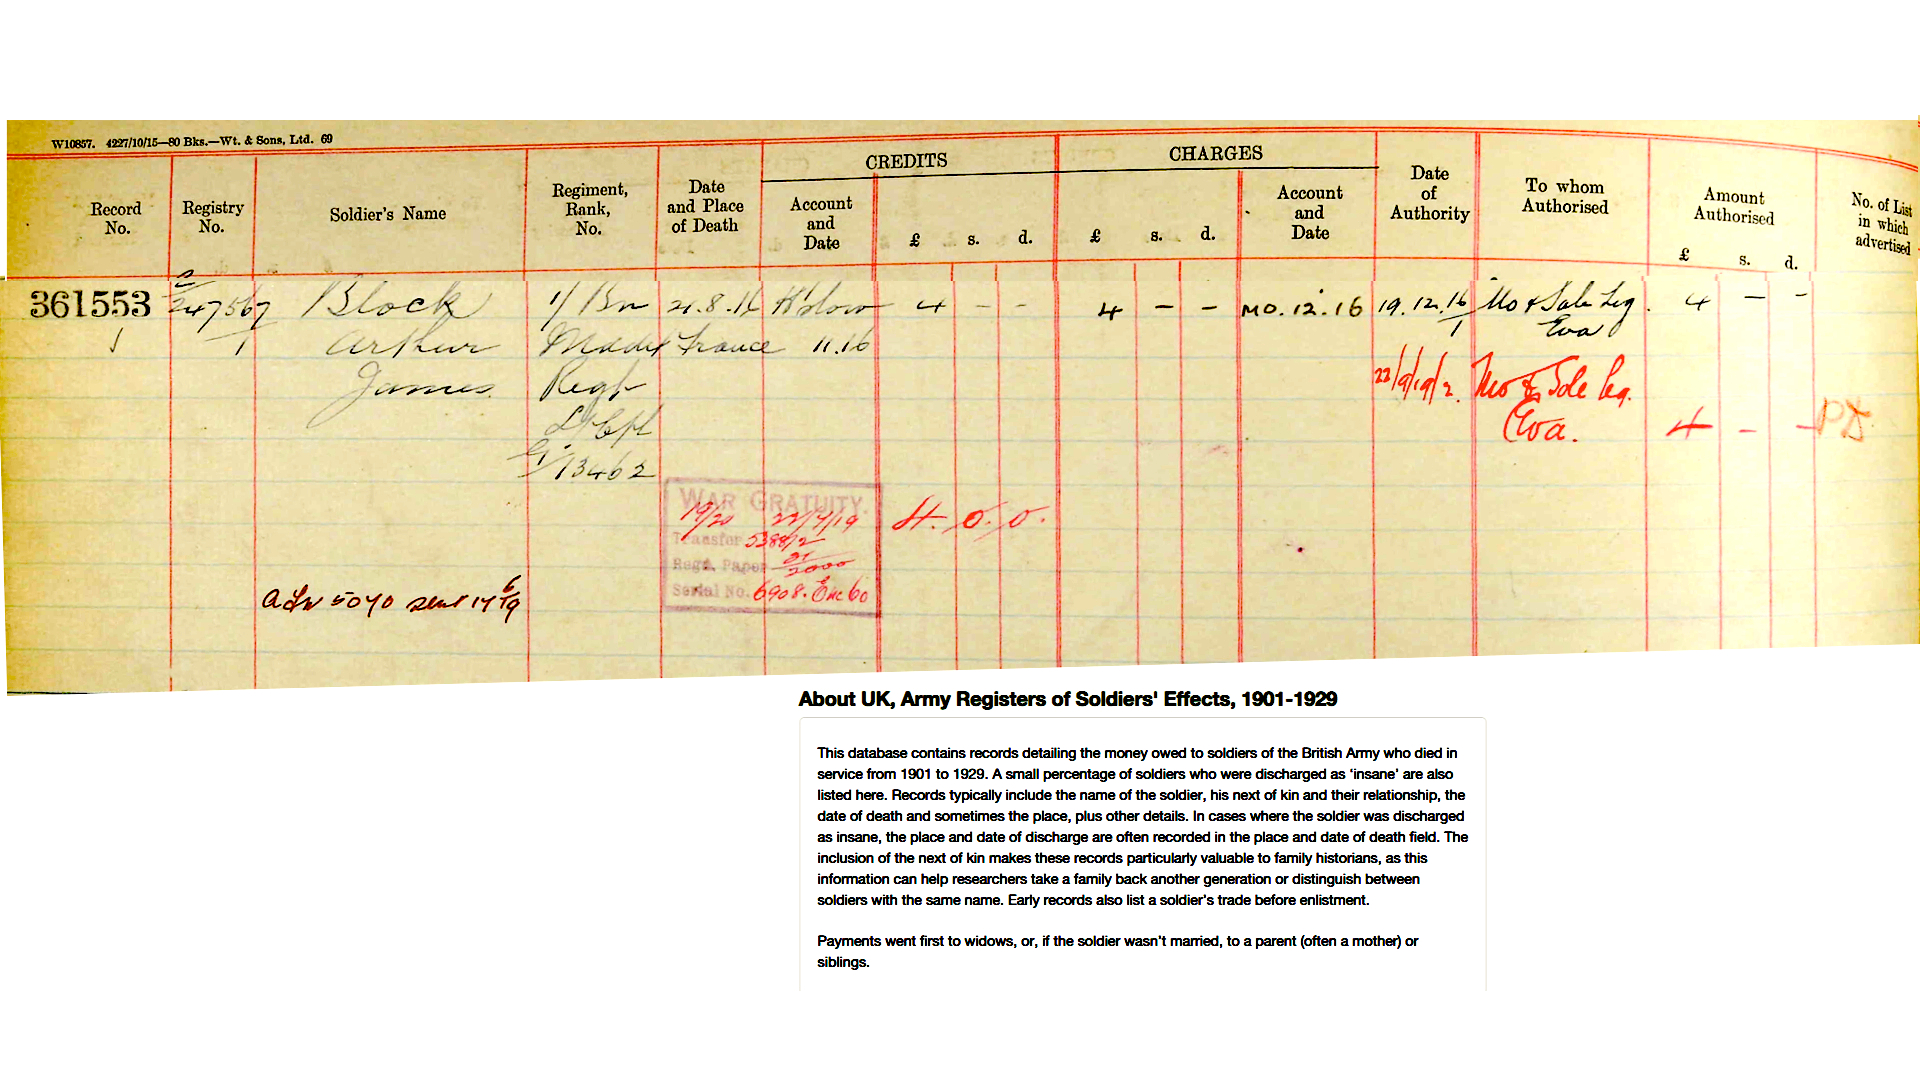 W10857. 4227/10/15—80 Bks.—Wt. & Sons, Ltd. 69
CREDITS CHARGES
Record No.
Registry No.
Soldier's Name
Regiment, Rank, No.
Date and Place of Death
Account and Date
£ s. d.
£ s. d.
Account and Date
Date of Authority
To whom Authorised
Amount Authorised
£ s. d.
No. of List in which advertised
361553 247567 Block 1/ Bn 21.8.16 H'slow 4 - - 4 - - MO.12.16 19.12.16 Mo & Sole Leg. 4 - -
1 Arthur Middx France 11.16 1 Eva
James Regt 22/9/19/2. Mo & Sole Leg.
L/Cpl Eva. 4 - - PD
G/13462
WAR GRATUITY.
19/20 22/7/19 4. 0. 0.
Transfer 5388/2
Regd. Paper 2000
Serial No. 6908. Enc 60
5070 sent 17 6/19
About UK, Army Registers of Soldiers' Effects, 1901-1929
This database contains records detailing the money owed to soldiers of the British Army who died in
service from 1901 to 1929. A small percentage of soldiers who were discharged as 'insane' are also
listed here. Records typically include the name of the soldier, his next of kin and their relationship, the
date of death and sometimes the place, plus other details. In cases where the soldier was discharged
as insane, the place and date of discharge are often recorded in the place and date of death field. The
inclusion of the next of kin makes these records particularly valuable to family historians, as this
information can help researchers take a family back another generation or distinguish between
soldiers with the same name. Early records also list a soldier's trade before enlistment.
Payments went first to widows, or, if the soldier wasn't married, to a parent (often a mother) or
siblings.